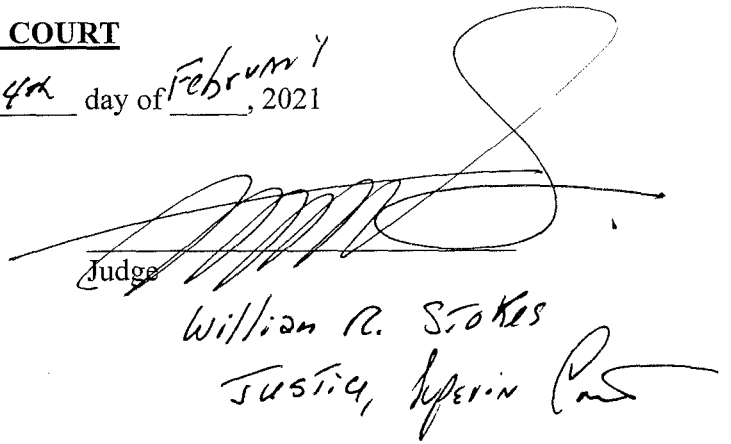 COURT
4th day of February, 2021
Judge
William R. Stokes
Justice, Superior Court